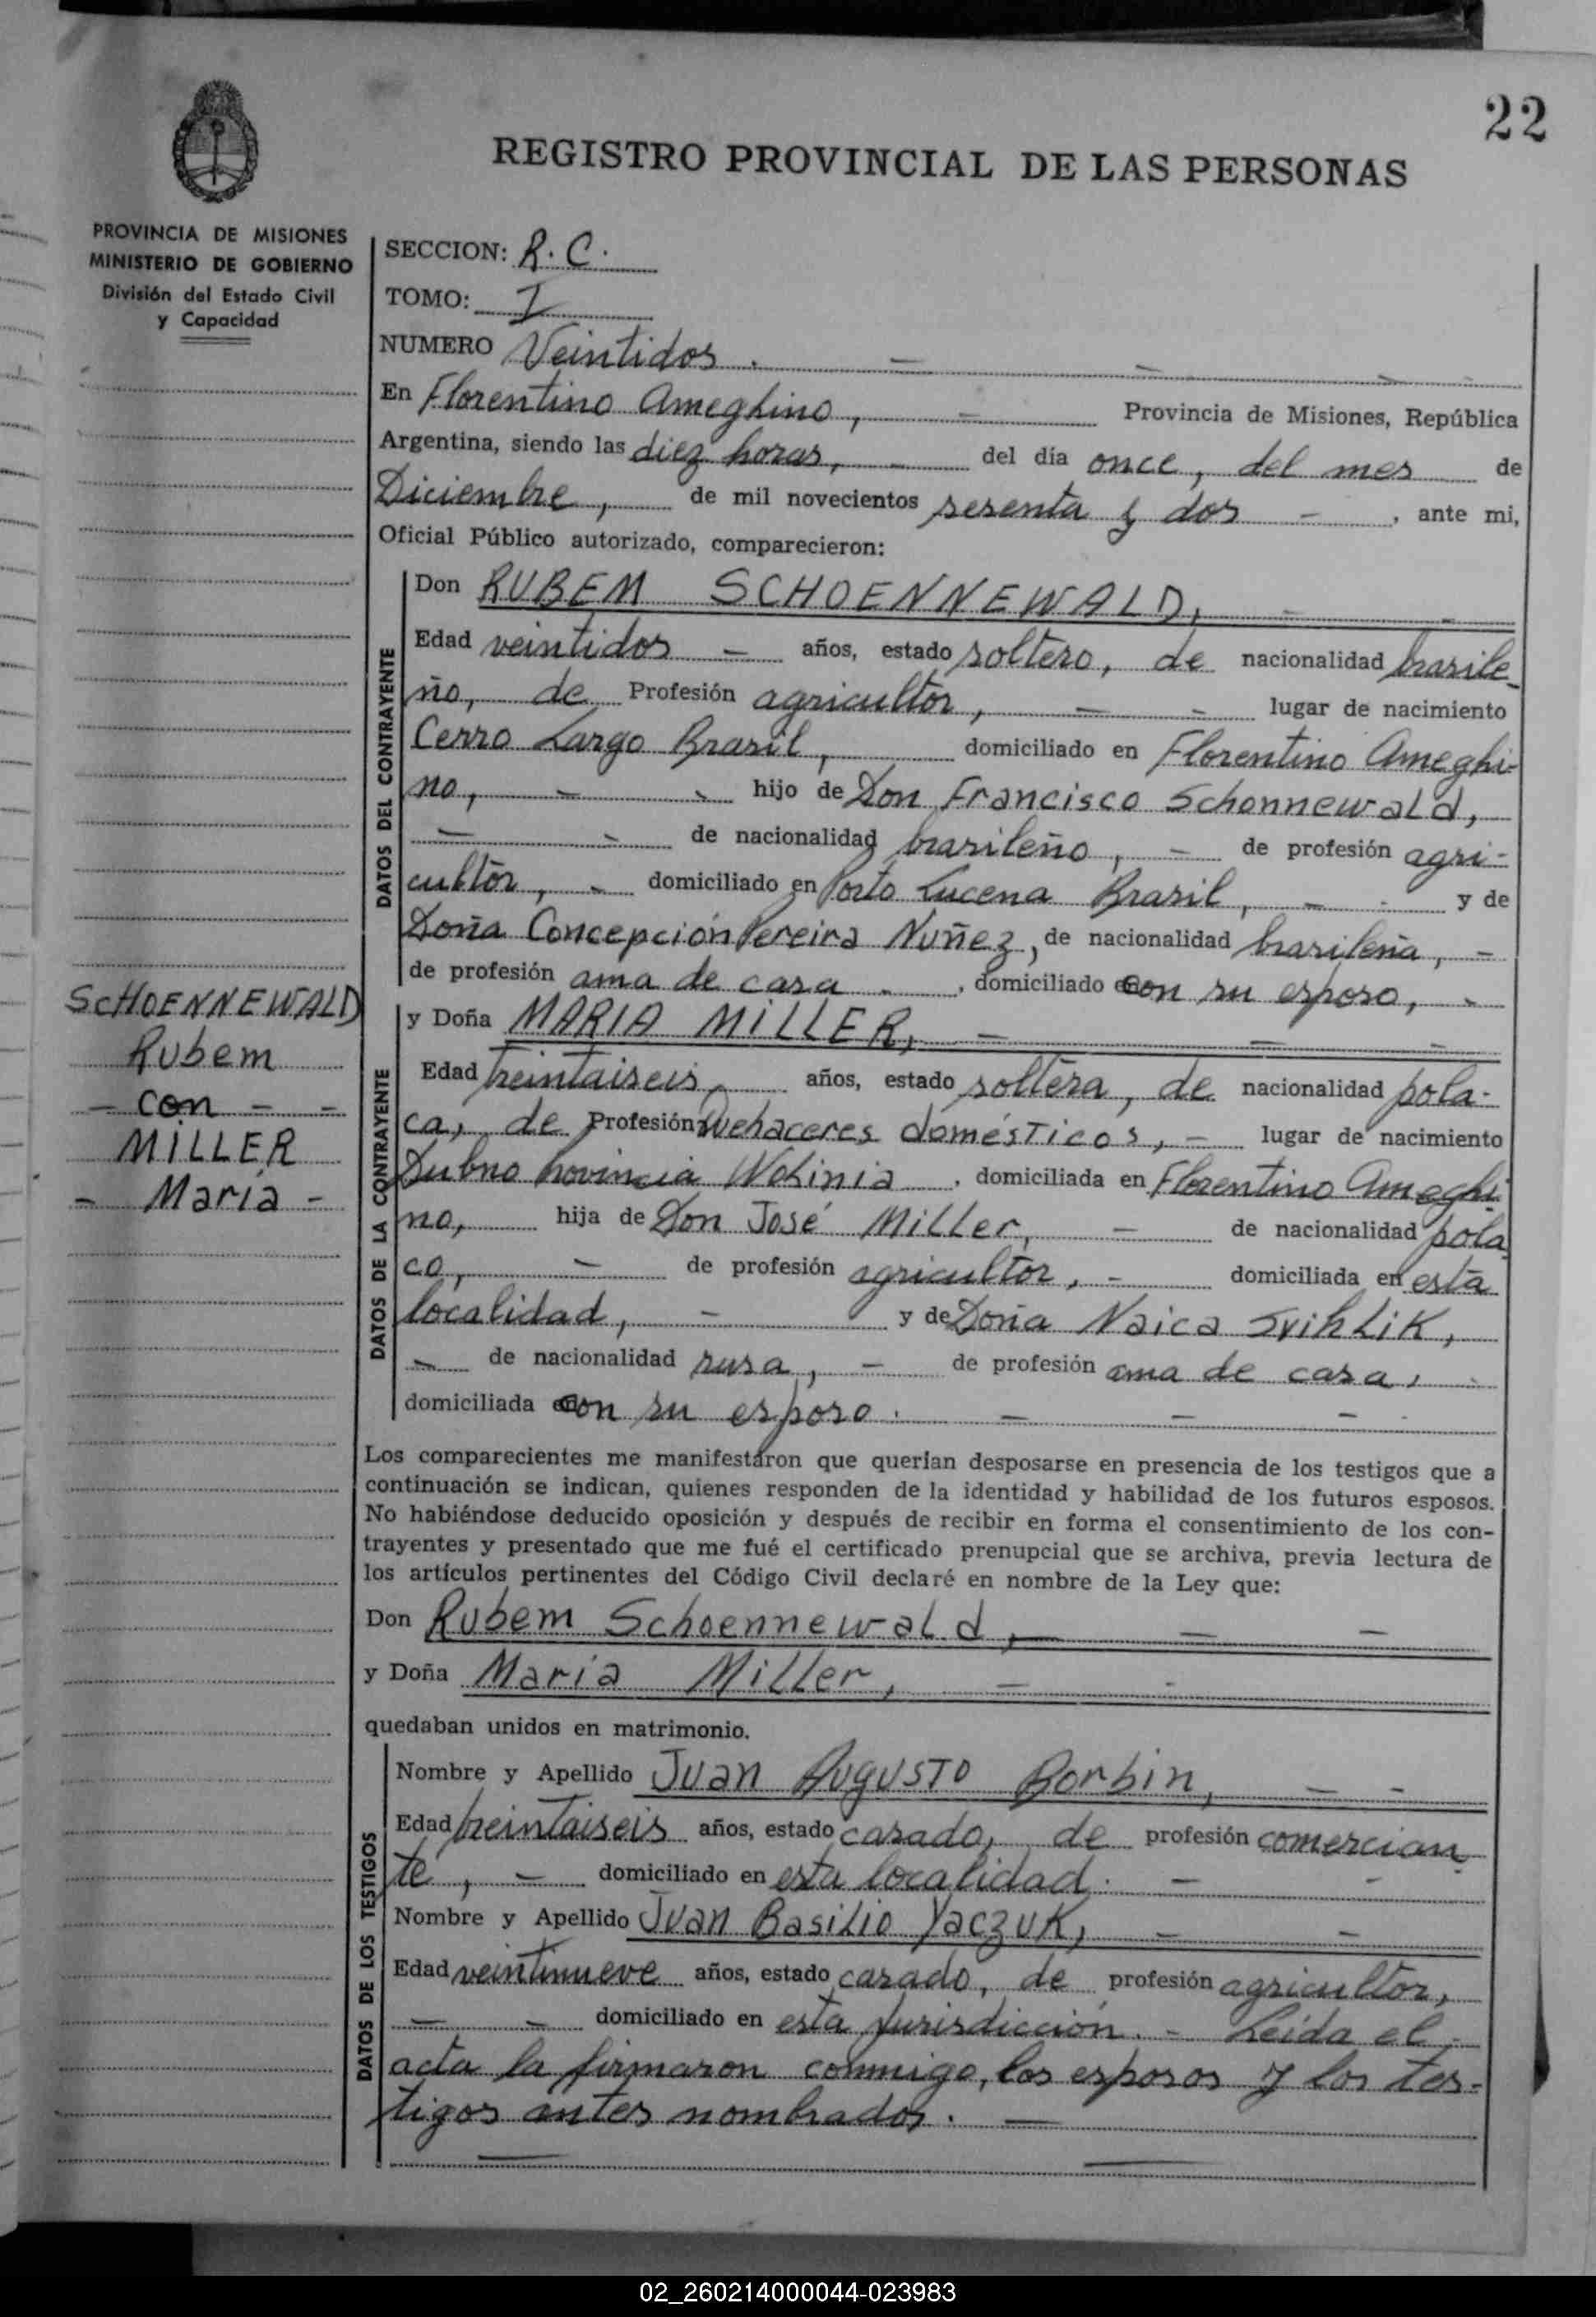 22
REGISTRO PROVINCIAL DE LAS PERSONAS
PROVINCIA DE MISIONES
MINISTERIO DE GOBIERNO
División del Estado Civil
y Capacidad
SECCION: R. C.
TOMO: I
NUMERO Veintidos. — — —
En Florentino Ameghino, — Provincia de Misiones, República
Argentina, siendo las diez horas, - del día once, del mes de
Diciembre, de mil novecientos sesenta y dos - , ante mi,
Oficial Público autorizado, comparecieron:
DATOS DEL CONTRAYENTE
Don RUBEM SCHOENNEWALD, — -
Edad veintidos — años, estado soltero, de nacionalidad brasile-
ño, de Profesión agricultor, — - lugar de nacimiento
Cerro Largo Brasil, domiciliado en Florentino Ameghi-
no, — - hijo de Don Francisco Schonnewald,
— - de nacionalidad brasileño, — de profesión agri-
cultor, - domiciliado en Porto Lucena Brasil, — - y de
Doña Concepción Pereira Nuñez, de nacionalidad brasileña, —
de profesión ama de casa - , domiciliado con su esposo, -
SCHOENNEWALD
Rubem
— con — —
MILLER
— María —
DATOS DE LA CONTRAYENTE
y Doña MARIA MILLER, — — —
Edad treintaiseis, años, estado soltera, de nacionalidad pola-
ca, de Profesión Quehaceres domésticos, — lugar de nacimiento
Dubno Provincia Wolinia , domiciliada en Florentino Ameghi
no, hija de Don José Miller, — de nacionalidad pola
co, — de profesión agricultor, — domiciliada en esta
localidad, — y de Doña Naica Svihlik,
— de nacionalidad rusa, — de profesión ama de casa, -
domiciliada con su esposo. — — —
Los comparecientes me manifestaron que querían desposarse en presencia de los testigos que a
continuación se indican, quienes responden de la identidad y habilidad de los futuros esposos.
No habiéndose deducido oposición y después de recibir en forma el consentimiento de los con-
trayentes y presentado que me fué el certificado prenupcial que se archiva, previa lectura de
los artículos pertinentes del Código Civil declaré en nombre de la Ley que:
Don Rubem Schoennewald, — — —
y Doña María Miller, — -
quedaban unidos en matrimonio.
DATOS DE LOS TESTIGOS
Nombre y Apellido Juan Augusto Borbin, — -
Edad treintaiseis años, estado casado, de profesión comercian
te, — domiciliado en esta localidad. — -
Nombre y Apellido Juan Basilio Yaczuk, — —
Edad veintinueve años, estado casado, de profesión agricultor,
— — domiciliado en esta Jurisdicción. - Leída el
acta la firmaron conmigo, los esposos y los tes-
tigos antes nombrados. —
02_260214000044-023983